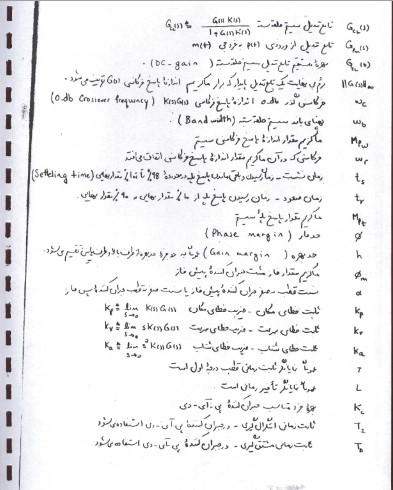 تابع تبدیل سیستم حلقه بسته G_CL(s) ≜ G(s) K(s) / 1+G(s) K(s) G_CL(s)
تابع تبدیل از ورودی p(t) به خروجی m(t)
بهره مستقیم تابع تبدیل سیستم حلقه بسته (DC-gain).
نرم بی نهایت یک تابع تبدیل پایدار که برابر ماکزیمم اندازه پاسخ فرکانسی G(s) تعریف می‌شود. ||G(s)||∞
فرکانس گذر 0db اندازه پاسخ فرکانسی K(s)G(s) (0.db Crossover frequency) ω_c
پهنای باند سیستم حلقه بسته (Bandwidth) ω_b
ماکزیمم مقدار اندازه پاسخ فرکانسی سیستم M_pω
فرکانسی که در آن ماکزیمم مقدار اندازه پاسخ فرکانسی اتفاق می‌افتد ω_r
زمان نشست - زمان رسیدن و باقی ماندن پاسخ پله در محدوده 98٪ تا مقدار نهایی (Settling time) t_s
زمان صعود - زمان رسیدن پاسخ پله از مقدار نهایی به 90٪ مقدار نهایی. t_r
ماکزیمم مقدار پاسخ پله سیستم M_pt
حد فاز (Phase margin) ϕ
حد بهره (Gain margin) تقسیم می‌شود. h
ماکزیمم مقدار فاز مثبت جبران کننده پیش فاز ϕ_m
نسبت قطب به صفر جبران کننده پیش فاز یا نسبت صفر به قطب جبران کننده پس فاز α
ثابت خطای مکان - ضریب خطای مکان K_p ≜ lim s→0 K(s)G(s) K_p
ثابت خطای سرعت - ضریب خطای سرعت K_v ≜ lim s→0 sK(s)G(s) K_v
ثابت خطای شتاب - ضریب خطای شتاب K_a ≜ lim s→0 s²K(s)G(s) K_a
عموماً نمایانگر ثابت زمانی قطب درجه اول است τ
عموماً نمایانگر تأخیر زمانی است. L
بهره جزء تناسب جبران کننده پی-آی-دی K_c
ثابت زمانی انتگرال‌گیری - در جبران کننده پی-آی-دی استفاده می‌شود T_I
ثابت زمانی مشتق‌گیری - در جبران کننده پی-آی-دی استفاده می‌شود T_D